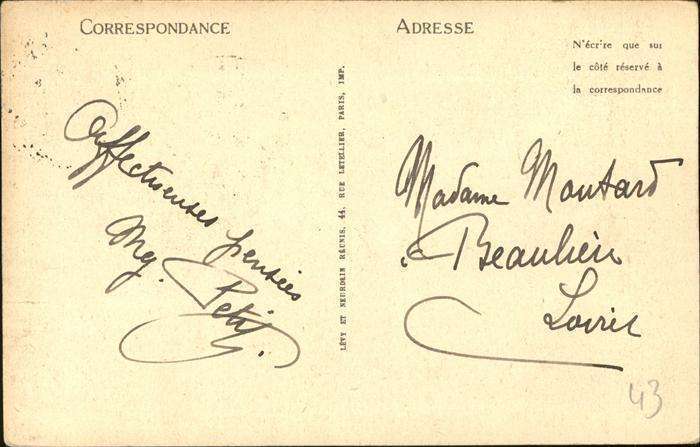 CORRESPONDANCE
ADRESSE
N'écrire que sur
le côté réservé à
la correspondance
Affectueuses pensées
Mg. Petit.
LÉVY ET NEURDEIN RÉUNIS, 44, RUE LETELLIER, PARIS, IMP.
Madame Moutard
Beaulieu
Loiret
43